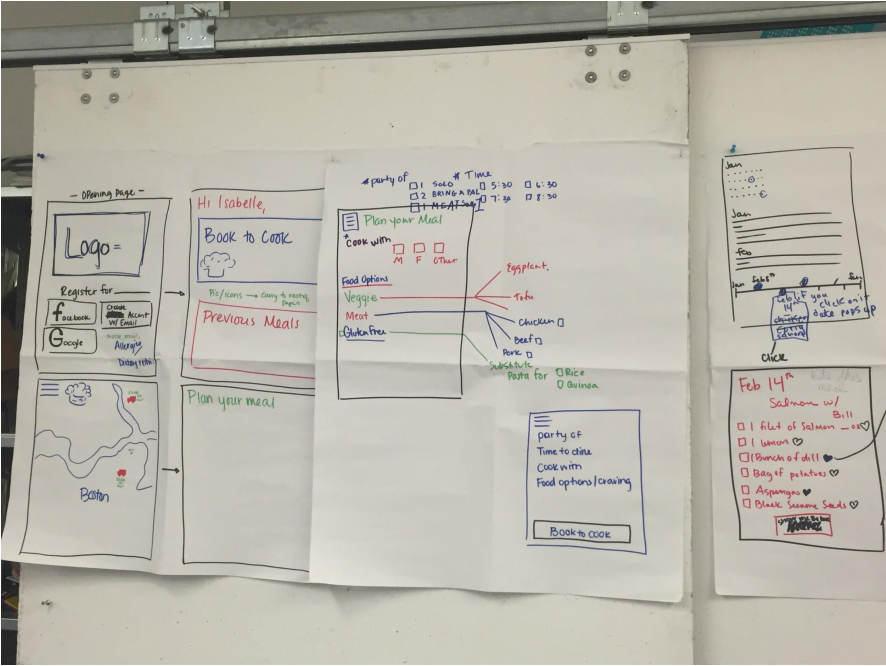 - Opening page -
Logo
Register for
facebook
Create
Accont
w/ Email
Google
Allergies
Boston
Hi Isabelle,
Book to Cook
Pic/icons →
Previous Meals
Plan your meal
#party of
1 SOLO
2 BRING A PAL
# Time
5:30 6:30
7:30 8:30
Plan your Meal
Cook with
M F Other
Food Options
Veggie
Meat
Gluten Free
Eggplant,
Tofu
Chicken
Beef
Pork
Substitute
Pasta for
Rice
Quinoa
party of
Time to dine
Cook with
Food options/craving
Book to cook
Jan
Jan
feb
Jan Feb 8th feb
Feb
14th
if you
click on it
date pops up
Click
Feb 14th
Salmon w/
Bill
1 filet of Salmon
1 lemon
1 Bunch of dill
Bag of potatoes
Asparagus
Black Sesame Seeds